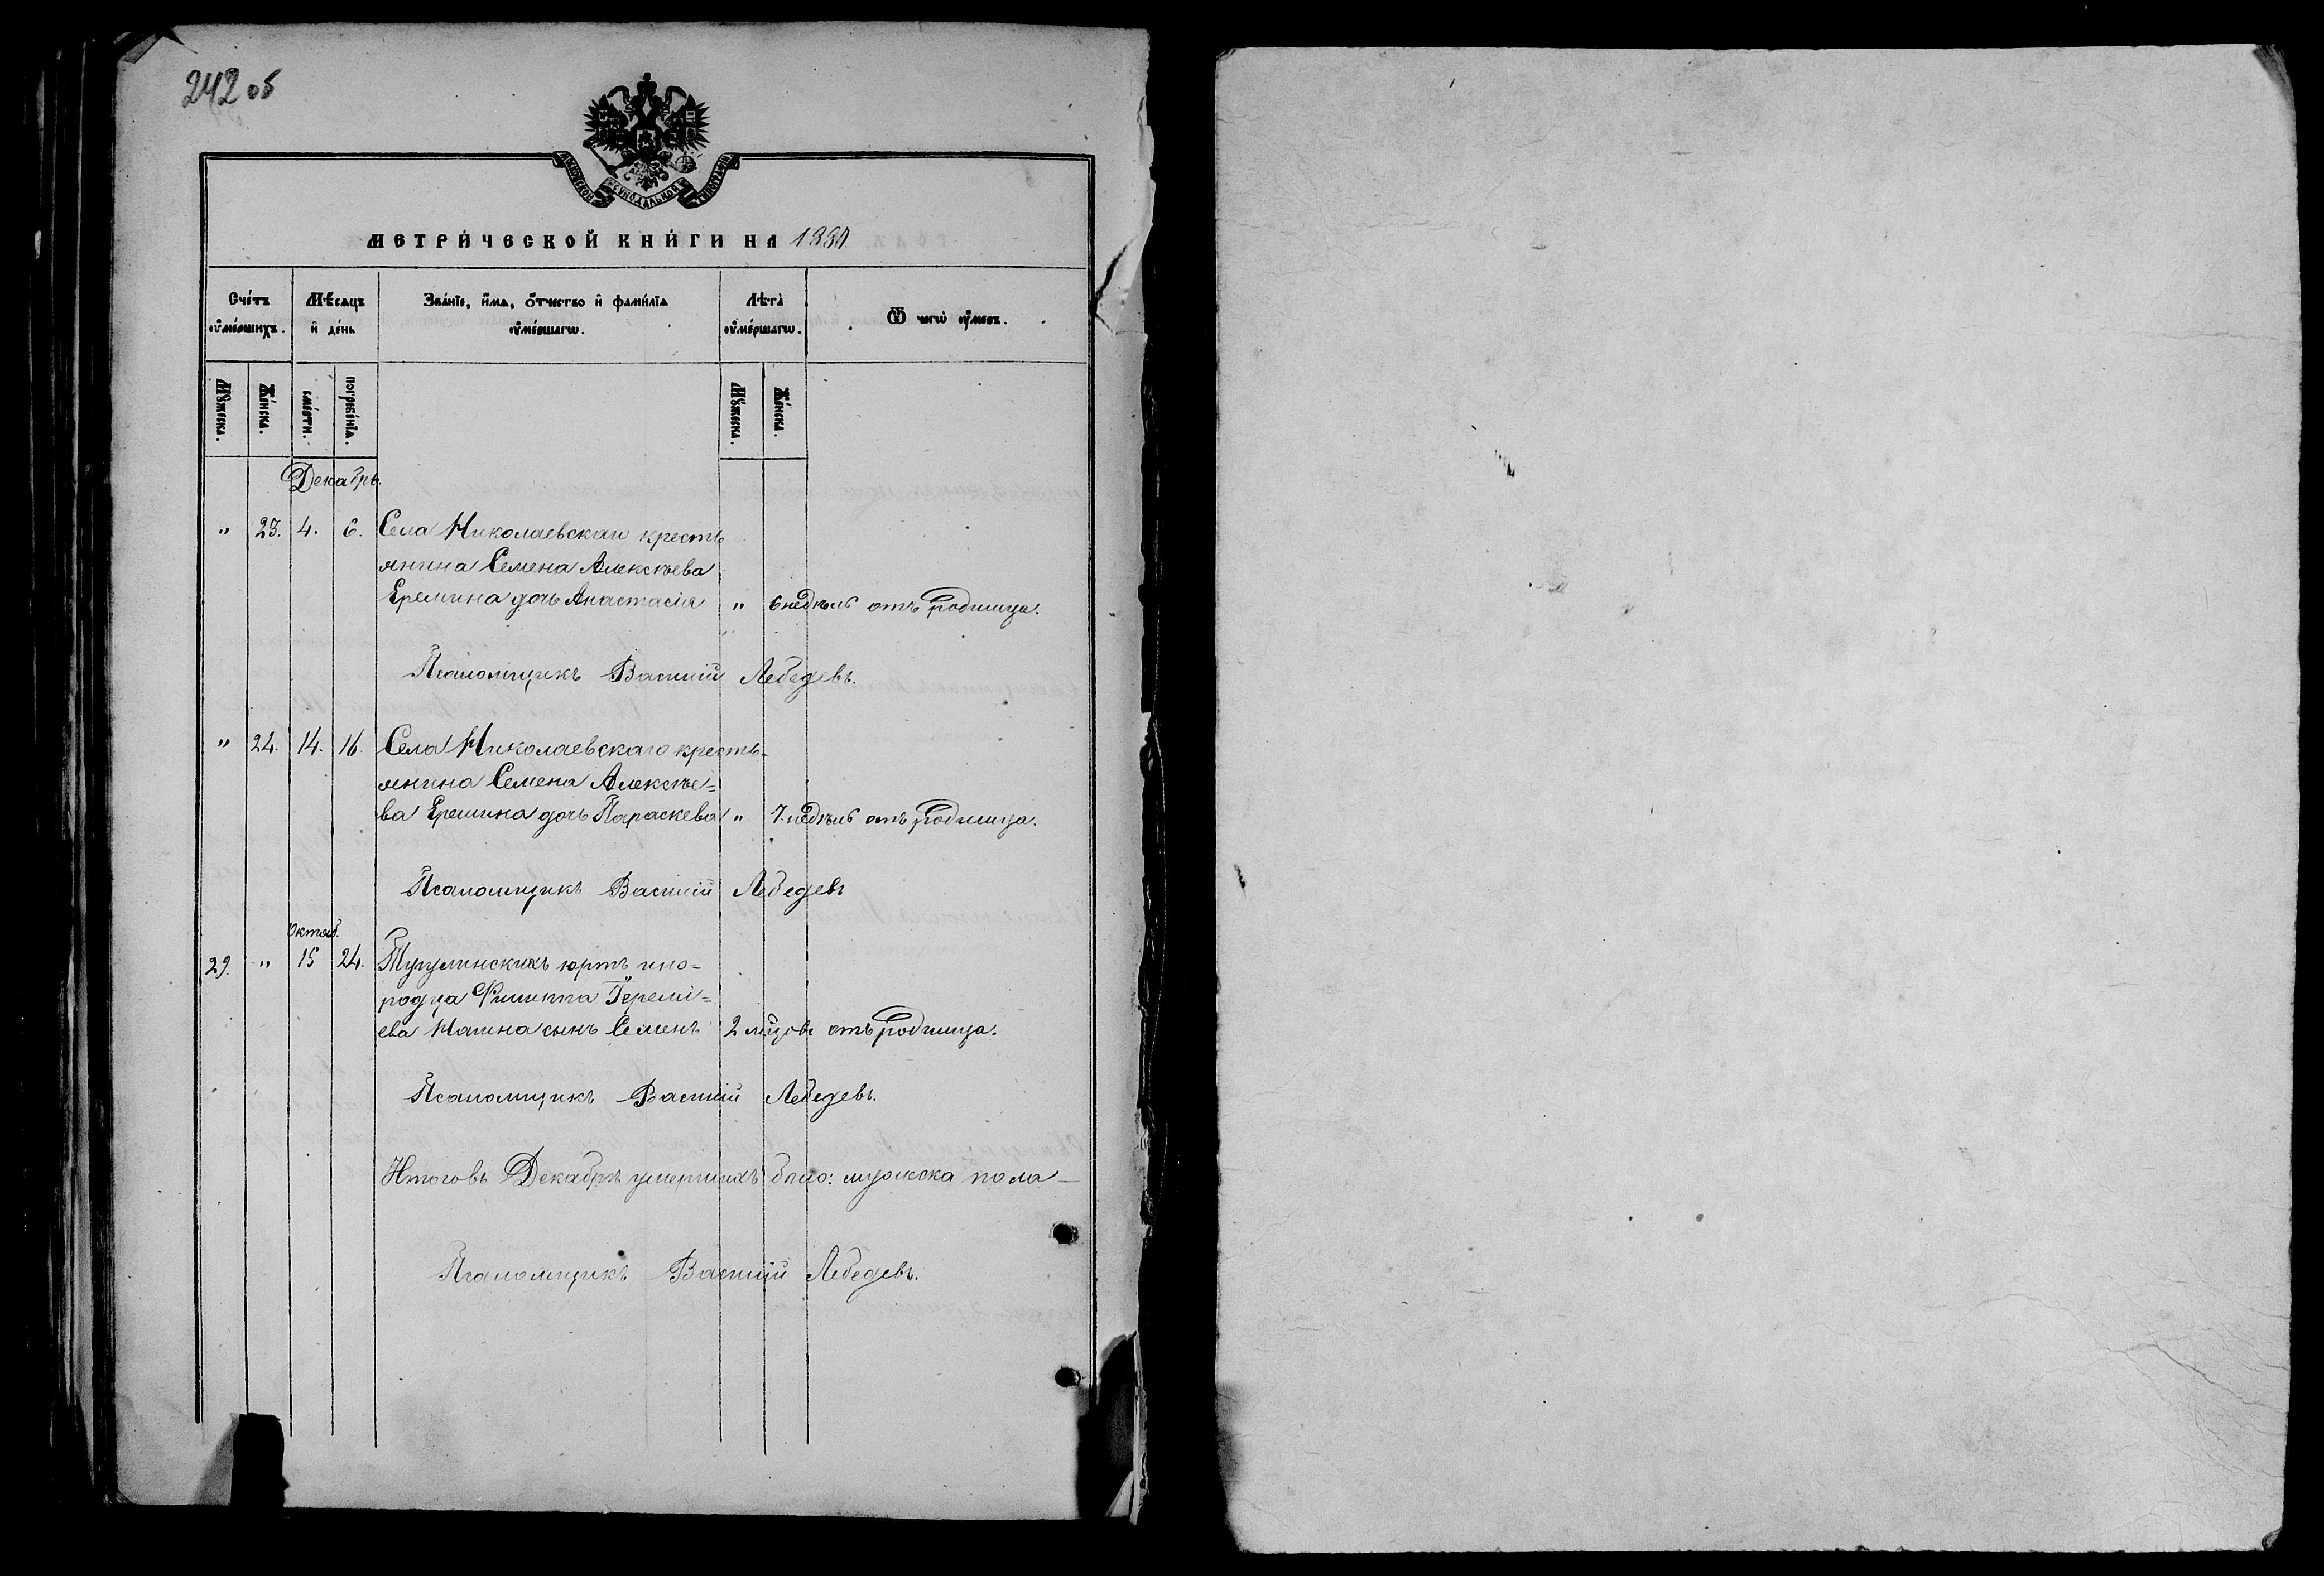 242 об
МОСКОВСКОЙ СѴНОДАЛЬНОЙ ТИПОГРАФІИ
МЕТРИ́ЧЕСКОЙ КНИ́ГИ НА 1887
Сче́тъ Мѣ́сяцъ Зва́нїе, и҆́мѧ, Ѻ҆́тчество и҆ фами́лїѧ Лѣ́та̀
ᲂу҆ме́ршихъ. и҆ де́нь ᲂу҆ме́ршагѡ. ᲂу҆ме́ршагѡ. Ѿ чегѡ̀ ᲂу҆́меръ.
Мꙋ́жеска. Же́нска. сме́рти. погребе́нїѧ. Мꙋ́жеска. Же́нска.
Декабрь.
" 23. 4. 6. Села Николаевскаго кресть
янина Семена Алексѣева
Еремина дочь Анастасія " 6 недѣль отъ родимца.
Псаломщикъ Василій Лебедевъ.
" 24. 14. 16. Села Николаевскаго кресть-
янина Семена Алексѣе=
ва Еремина дочь Параскева " 7 недѣль отъ родимца.
Псаломщикъ Василій Лебедевъ
Октяб.
29. " 15 24. Тугулинскихъ юртъ ино-
родца Филиппа Іеремі=
ева сынъ Семенъ 2 мѣцовъ отъ родимца.
Псаломщикъ Василій Лебедевъ.
Итого въ Декабрѣ умершихъ было: мужеска пола —
Псаломщикъ Василій Лебедевъ.